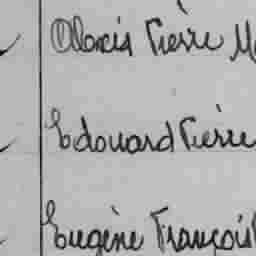 Alexis Pierre M
Edouard Pierre
Eugène François